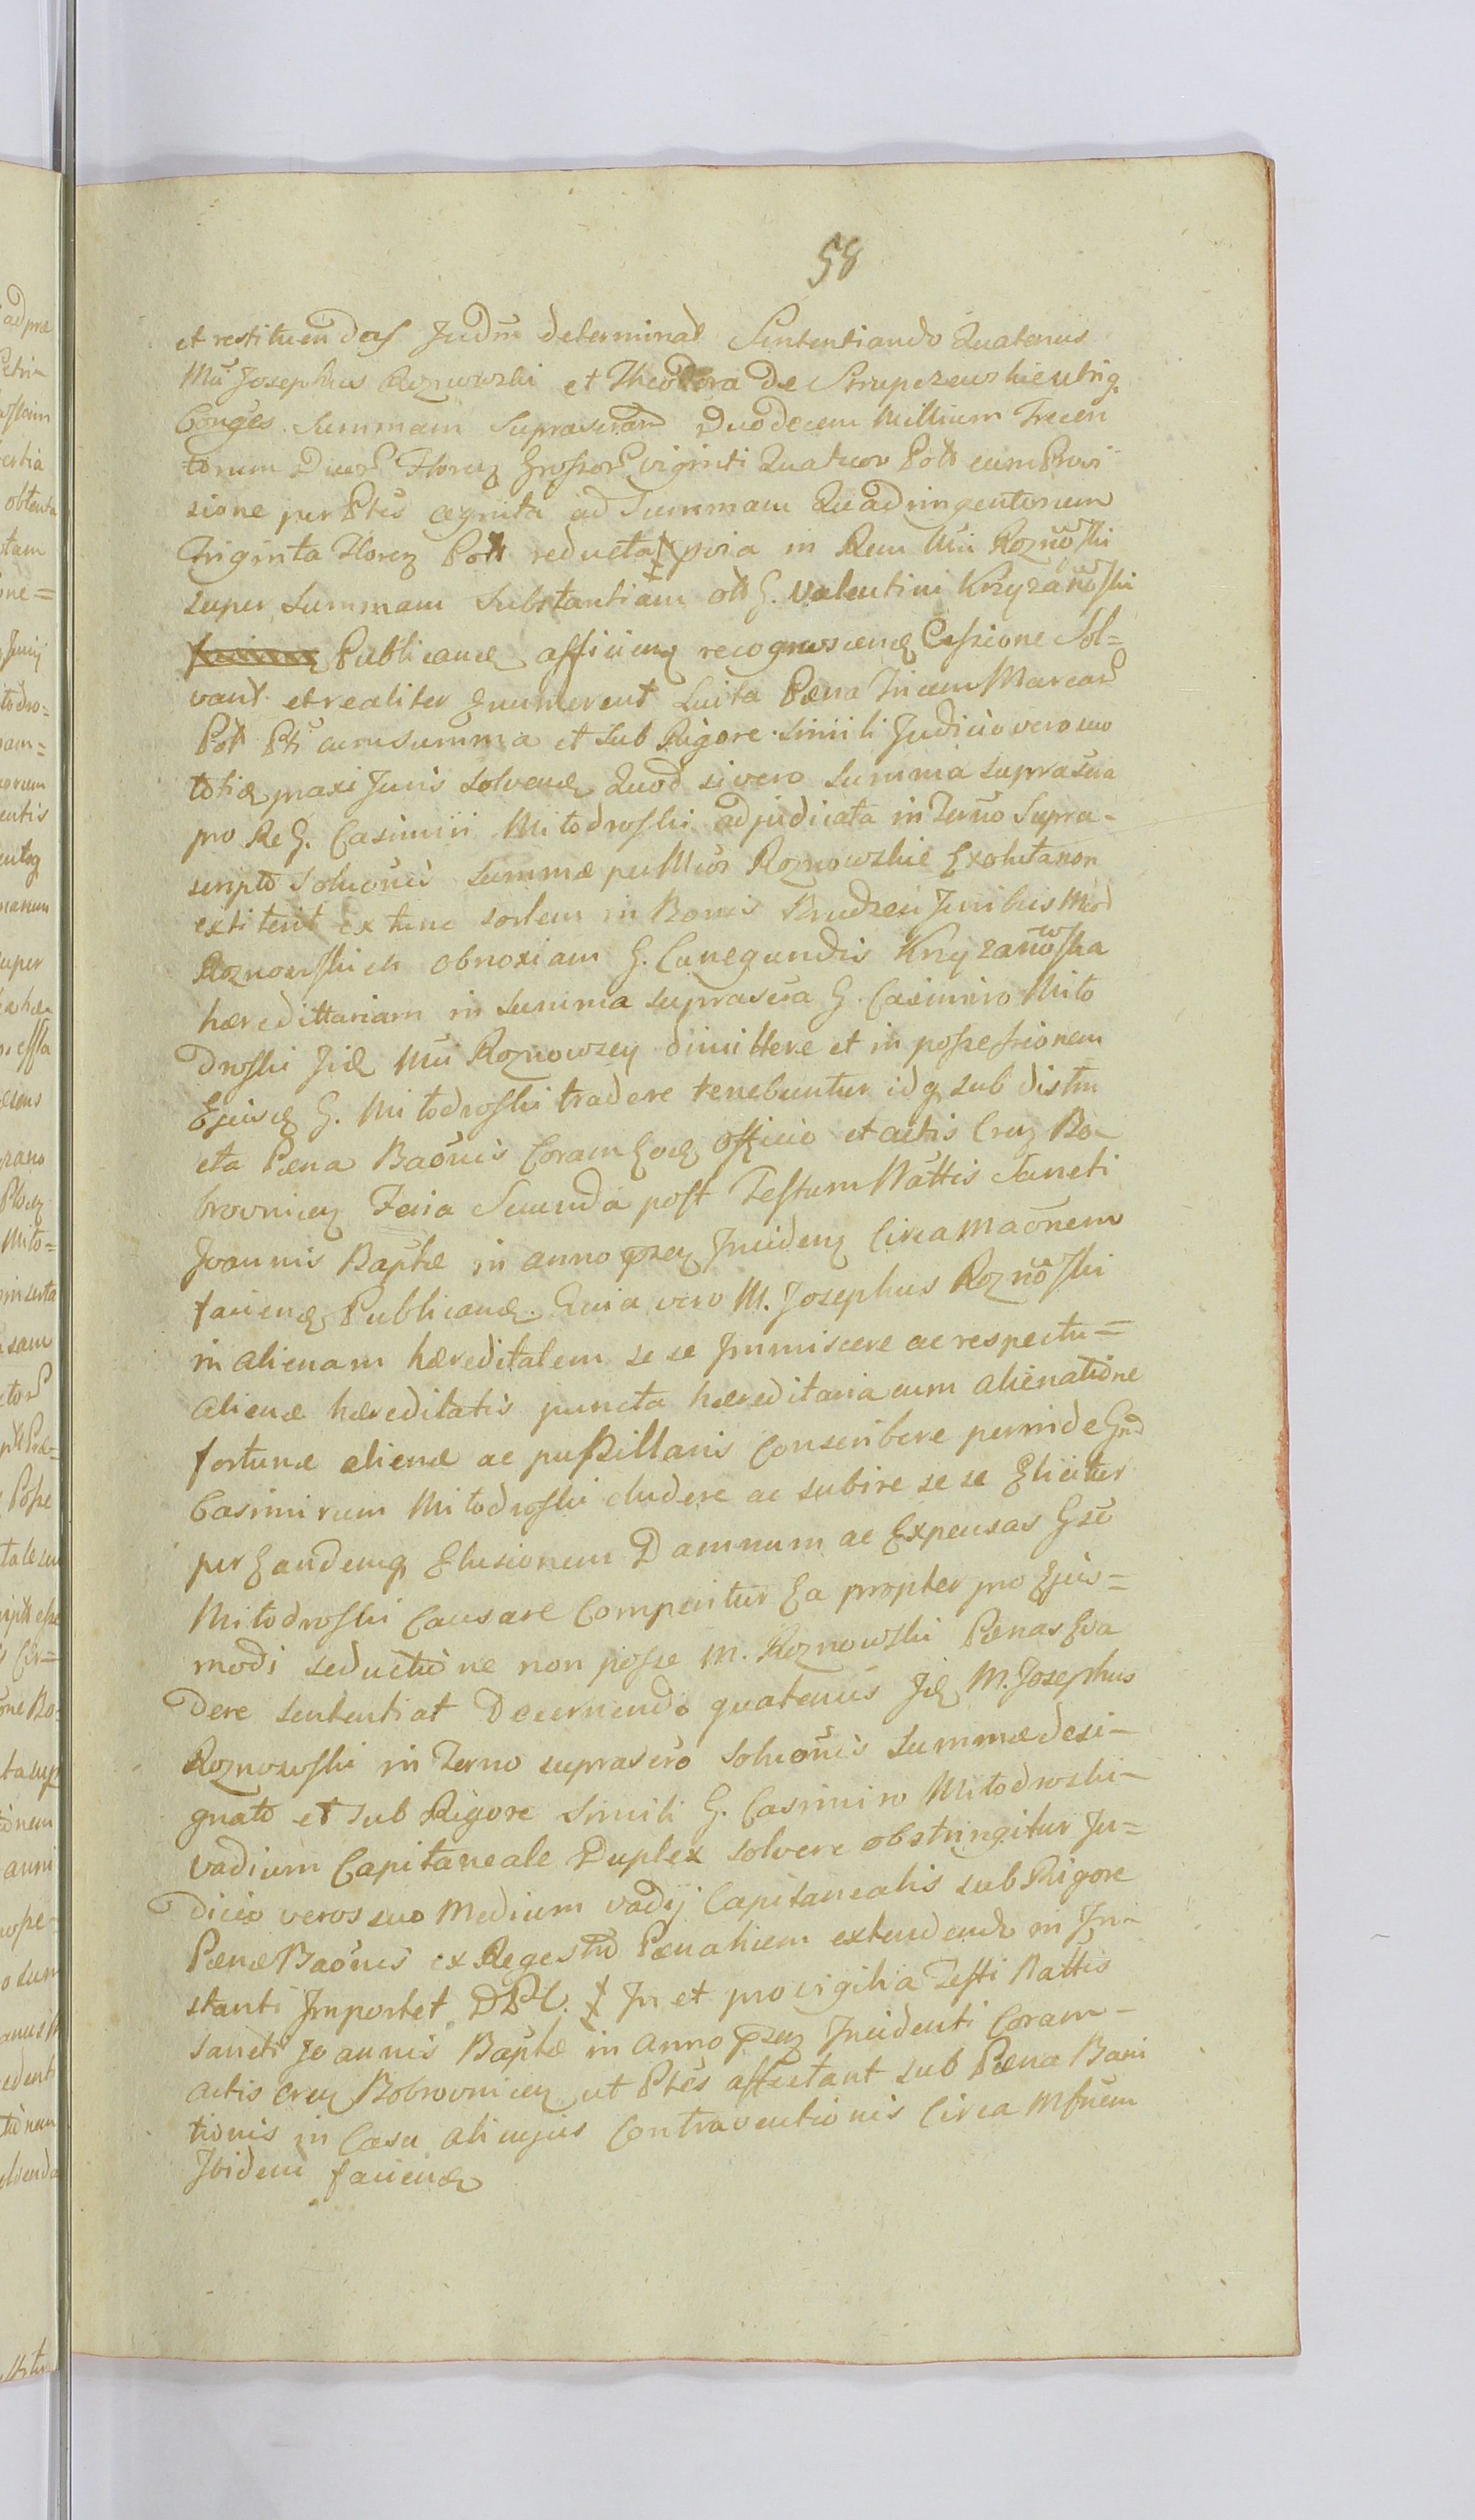 58
et restituendas Judm determinat Sententiando Quatenus
Mũs Josephus Roznowski et Theodora de Strupczewskie utriq
Conges Summam Suprascram Duodecem Millium Trecen
torum Ducen Floren Grossor viginti Quatuor Poll cum Provi
sione per Ptes cognita ad Summam Quadringentorum
Triginta Floren Poll reducta pria in Rem Mũi Roznoski
super Summam Substantiam oll G. Valentini Krzyzanowski
Publicand officiiq recognoscend Cessione Sol=
vant et realiter Enumerent Luita Pæna Tricem Marcar
Poll Pti cum summa et sub Rigore simili Judicio vero suo
toties praxi Juris solvend Quod si vero summa suprascra
pro Re G. Casimiri Mitodroski adjudicata in Termo Supra-
scripto Soluonis summæ per Mũos Roznowskie Exoluta non
extiterit ex tunc sortem in Bonis Brudzen Juribus Mòd
Roznowskich obnoxiam G. Cunegundis Krzyzanowska
hæredittariam in summa suprascra G. Casimiro Mito
droski Jid Mũi Roznowscy dimittere et in possessionem
Ejusd G. Mitodroski tradere tenebuntur idq sub distri
cta Pæna Baõnis Coram Eod officio et actis Cren Bo-
brovnicen Feria Secunda post Festum Nattis Sancti
Joannis Baptæ in anno præn Inciden Circa Maonem
faciend Publicand. Quia vero M. Josephus Roznoski
in alienam hæreditatem se se Immiscere ac respectu=
alienæ hæreditatis puncta hæreditaria cum alienatione
fortunæ alienæ ac pupillaris Conscribere perinde Gnd
Casimirum Mitodroski eludere ac subire se se Elicitur
per Eandemq Elusionem Damnum ac Expensas Gso
Mitodroski Causare Comperitur Ea propter pro Ejus=
modi seductione non posse M. Roznowski Pænas Eva
dere sententiat Decernendo quatenus Jd M. Josephus
Roznowski in Termo suprascro Soluonis summæ desi-
gnato et sub Rigore simili G. Casimiro Mitodroski-
vadium Capitaneale Duplex solvere obstringitur Ju=
dicio vero suo Medium vadij Capitanealis sub Rigore
Pænæ Baõnis ex Regestro Pænalium extendendo in In-
stanti Importet DPC. In et pro vigilia Festi Nattis
Sancti Joannis Baptæ in anno præn Incidenti Coram-
actis Cren Bobrovnicen ut Ptes affectant sub Pæna Bani
tionis in Casu alicujus Contraventionis Circa Mfnem
Ibidem faciend